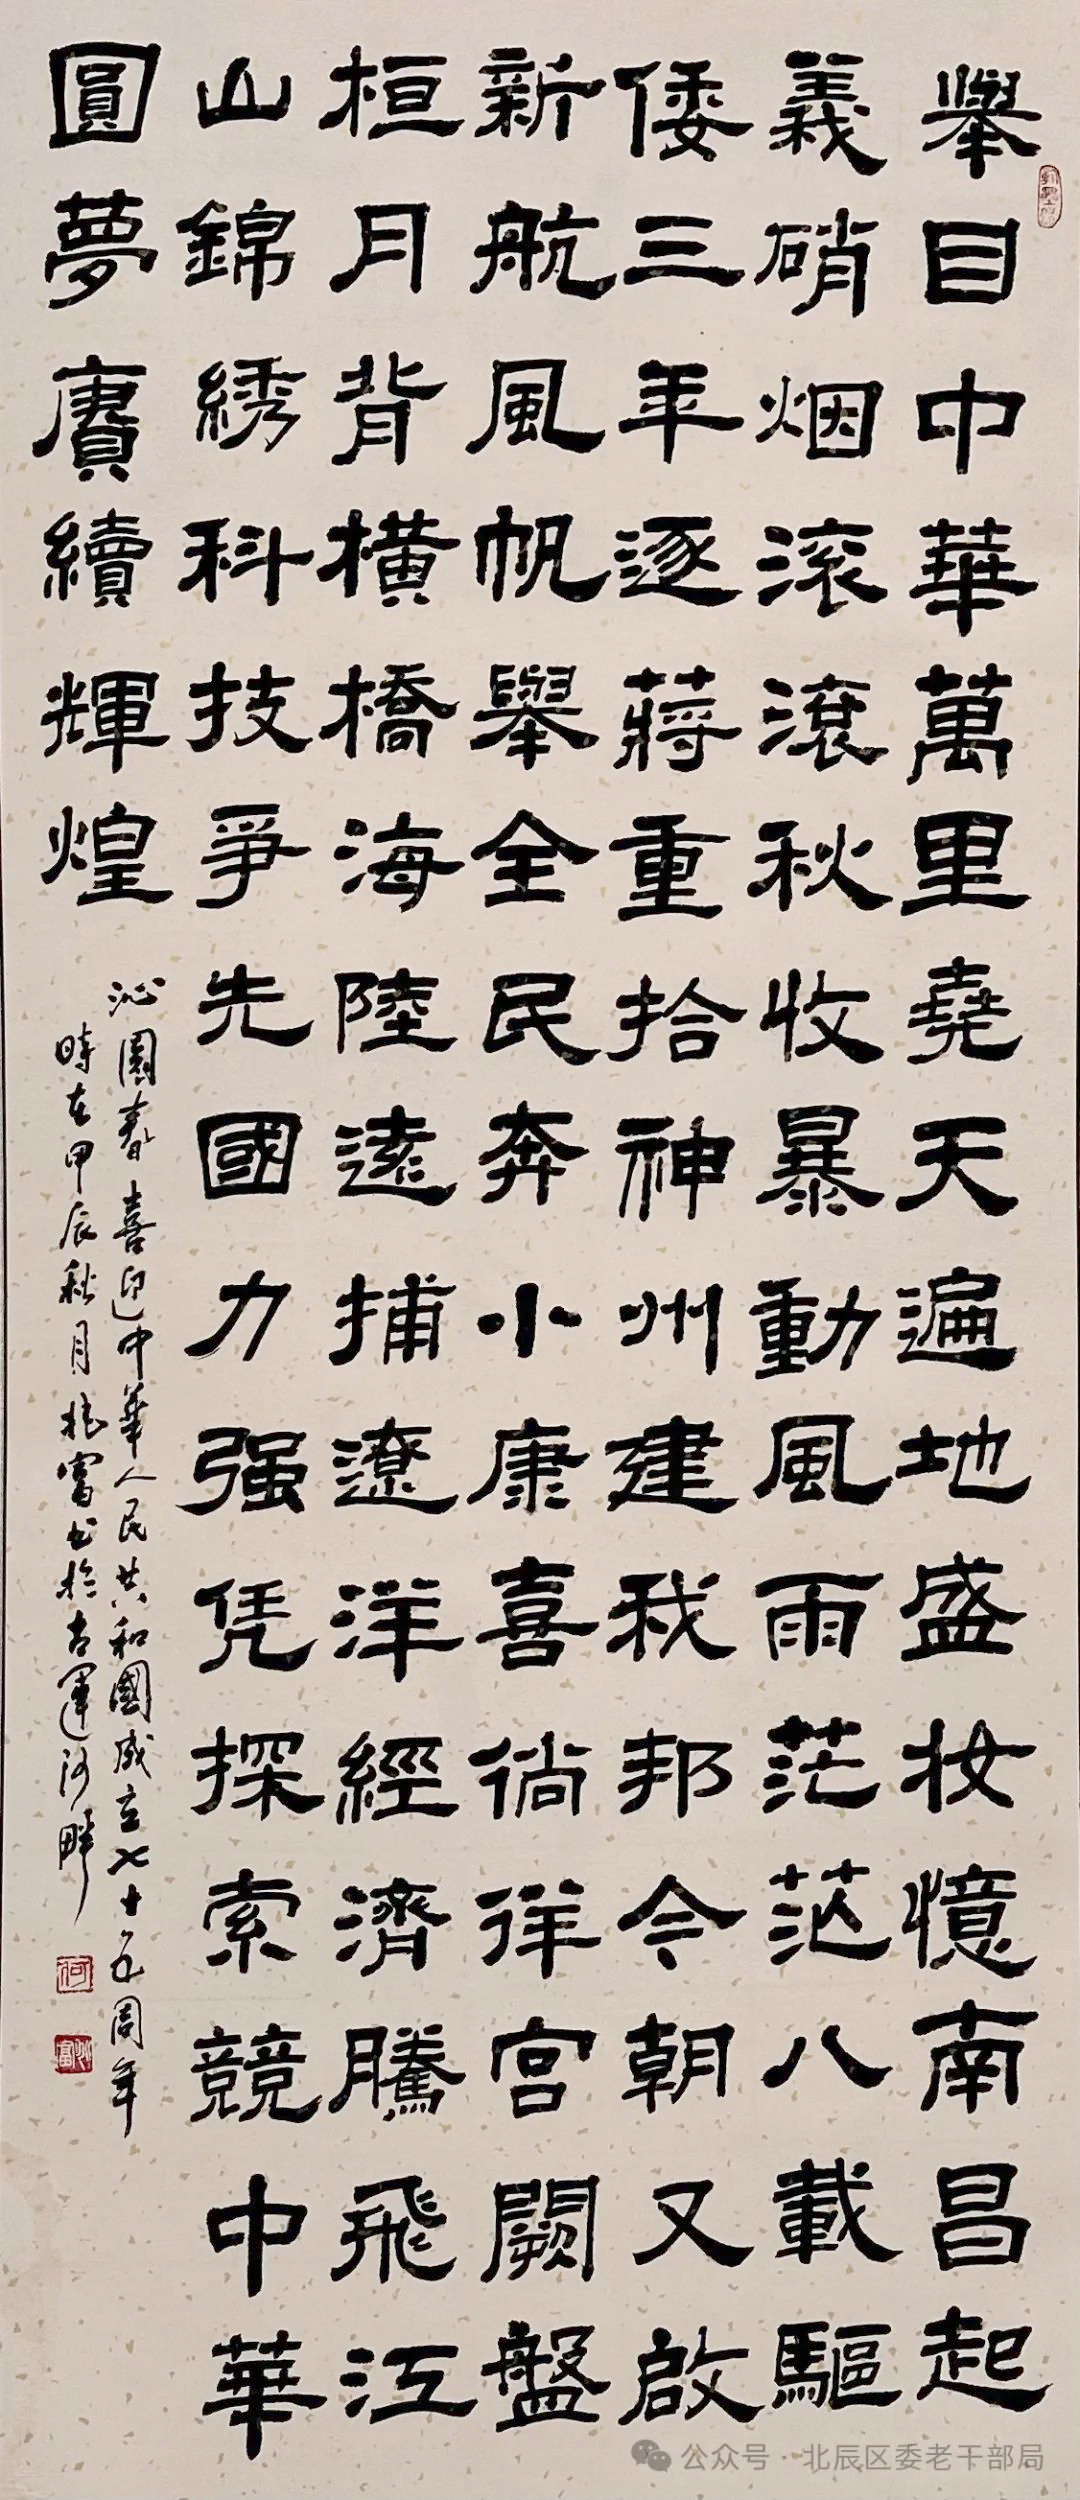 舉目中華萬里堯天遍地盛妝憶南昌起
義硝烟滾滾秋收暴動風雨茫茫八載驅
倭三年逐蔣重拾神州建我邦今朝又啟
新航風帆舉全民奔小康喜徜徉宮闕盤
桓月背橫橋海陸遠捕遼洋經濟騰飛江
山錦綉科技爭先國力强凭探索競中華
圓夢賡續輝煌
沁園春喜迎中華人民共和國成立七十五周年
時在甲辰秋月兆富书於古運河畔
公众号·北辰区委老干部局